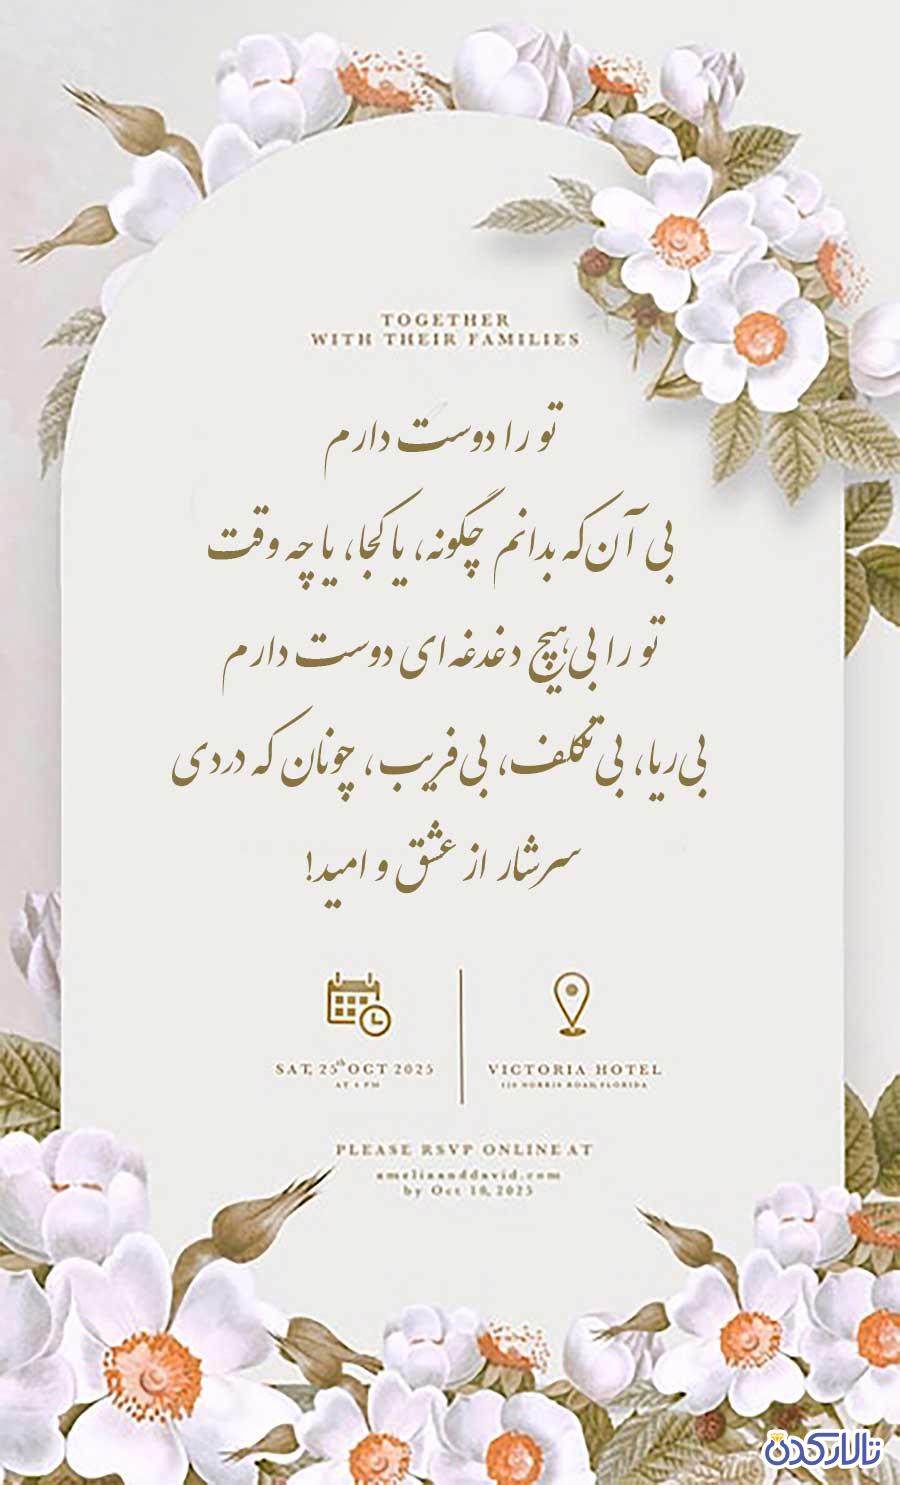 TOGETHER
WITH THEIR FAMILIES
تو را دوست دارم
بی آن‌که بدانم چگونه، یا کجا، یا چه وقت
تو را بی‌هیچ دغدغه‌ای دوست دارم
بی‌ریا، بی‌تکلف، بی‌فریب، چونان که دردی
سرشار از عشق و امید!
SAT, 25th OCT 2025
AT 4 PM
VICTORIA HOTEL
NORRIS ROAD, FLORIDA
PLEASE RSVP ONLINE AT
ameliaanddavid.com
by Oct 10, 2025
تالار کدن